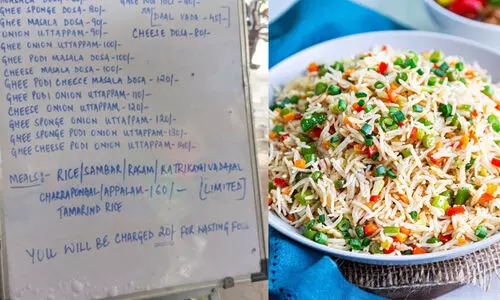 GHEE SPONGE DOSA-90/-
[DAAL VADA -45/-]
ONION UTTAPPAM-90/-
CHEESE DOSA-80/-
GHEE ONION UTTAPPAM-100/-
GHEE PODI MASALA DOSA-100/-
CHEESE MASALA DOSA-100/-
GHEE PODI CHEESE MASALA DOSA-120/-
GHEE PODI ONION UTTAPPAM-110/-
CHEESE ONION UTTAPPAM-120/-
GHEE SPONGE ONION UTTAPPAM-120/-
GHEE SPONGE PODI ONION UTTAPPAM-130/-
GHEE CHEESE PODI ONION UTTAPPAM
MEALS:- RICE/SAMBAR/RASAM/KATRIKAYAI VADAYAL
CHAKRAPONGAL/APPALAM-160/- [LIMITED]
TAMARIND RICE
YOU WILL BE CHARGED 20/- FOR WASTING FOOD